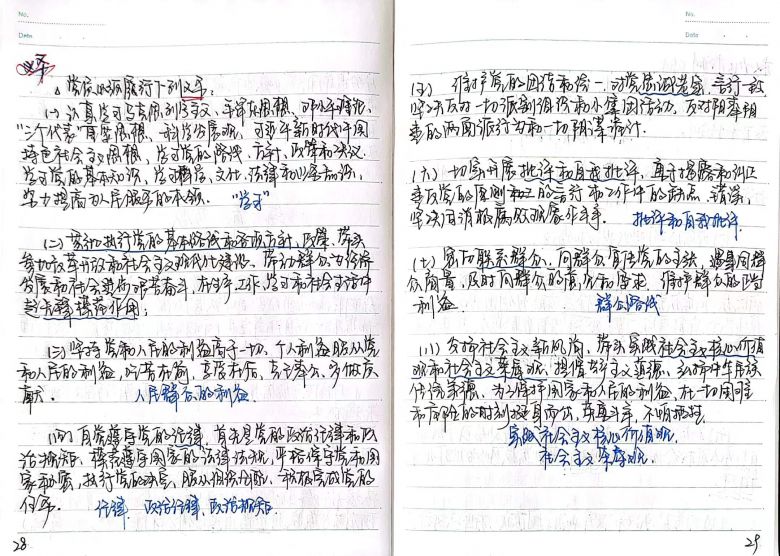 No.
Date
义务
1. 党员必须履行下列义务：
(一) 认真学习马克思列宁主义、毛泽东思想、邓小平理论、
"三个代表"重要思想、科学发展观、习近平新时代中国
特色社会主义思想，学习党的路线、方针、政策和决议，
学习党的基本知识，学习科学、文化、法律和业务知识，
努力提高为人民服务的本领. "学习"
(二) 贯彻执行党的基本路线和各项方针、政策，带头
参加改革开放和社会主义现代化建设，带动群众为经济
发展和社会进步艰苦奋斗，在生产、工作、学习和社会生活中
起先锋模范作用；
(三) 坚持党和人民的利益高于一切，个人利益服从党
和人民的利益，吃苦在前，享受在后，克己奉公，多做贡
献. 人民群众的利益
(四) 自觉遵守党的纪律，首先是党的政治纪律和政
治规矩，模范遵守国家的法律法规，严格保守党和国
家秘密，执行党的决定，服从组织分配，积极完成党的
任务. 纪律 政治纪律、政治规矩.
28
No.
Date
(五) 维护党的团结和统一，对党忠诚老实，言行一致，
坚决反对一切派别组织和小集团活动，反对阳奉阴
违的两面派行为和一切阴谋诡计.
(六) 切实开展批评和自我批评，勇于揭露和纠正
违反党的原则的言行和工作中的缺点、错误，
坚决同消极腐败现象作斗争. 批评和自我批评.
(七) 密切联系群众，向群众宣传党的主张，遇事同群
众商量，及时向群众的意见和要求，维护群众的正当
利益. 群众路线
(八) 发扬社会主义新风尚，带头实践社会主义核心价值
观和社会主义荣辱观，提倡共产主义道德，弘扬中华民族
传统美德，为了保护国家和人民的利益，在一切困难
和危险的时刻挺身而出，英勇斗争，不怕牺牲.
实践社会主义核心价值观，
社会主义荣辱观.
29